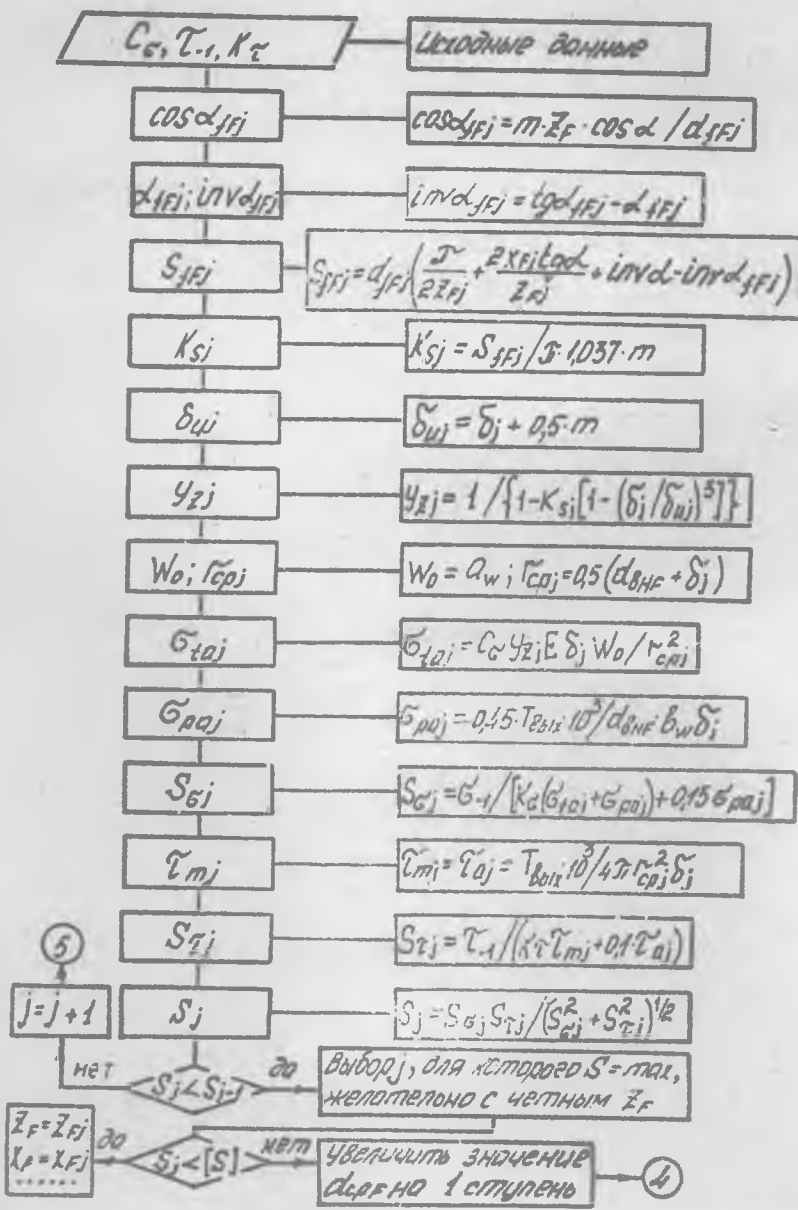 C_σ, τ_-1, K_τ
Исходные данные
cosα_fFj
cosα_fFj = m·z_F·cosα/d_fFj
α_fFj; invα_fFj
invα_fFj = tgα_fFj - α_fFj
S_fFj
S_fFj = d_fFj(π/2z_Fj + 2x_Fj tgα/z_Fj + invα - invα_fFj)
K_sj
K_sj = S_fFj/π·1,037·m
δ_цj
δ_цj = δ_j + 0,5·m
y_zj
y_zj = 1/{1-K_sj[1-(δ_j/δ_цj)^3]}
W_o; r_cpj
W_o = a_w; r_cpj = 0,5(d_внF + δ_j)
σ_taj
σ_taj = C_σ y_zj E δ_j W_o/r²_cpj
σ_paj
σ_paj = 0,45·T_вых 10³/d_внF b_w δ_j
S_σj
S_σj = σ_-1/[K_σ(σ_taj+σ_paj)+0,15σ_paj]
τ_mj
τ_mj = τ_aj = T_вых 10³/4π r²_cpj δ_j
S_τj
S_τj = τ_-1/(K_τ τ_mj + 0,1·τ_aj)
5
j = j + 1
S_j
S_j = S_σj S_τj/(S²_σj + S²_τj)^1/2
нет
S_j < S_j-1
да
Выбор j, для которого S = max,
желательно с четным z_F
z_F = z_Fj
x_F = x_Fj
......
да
S_j < [S]
нет
Увеличить значение
d_cpF на 1 ступень
4